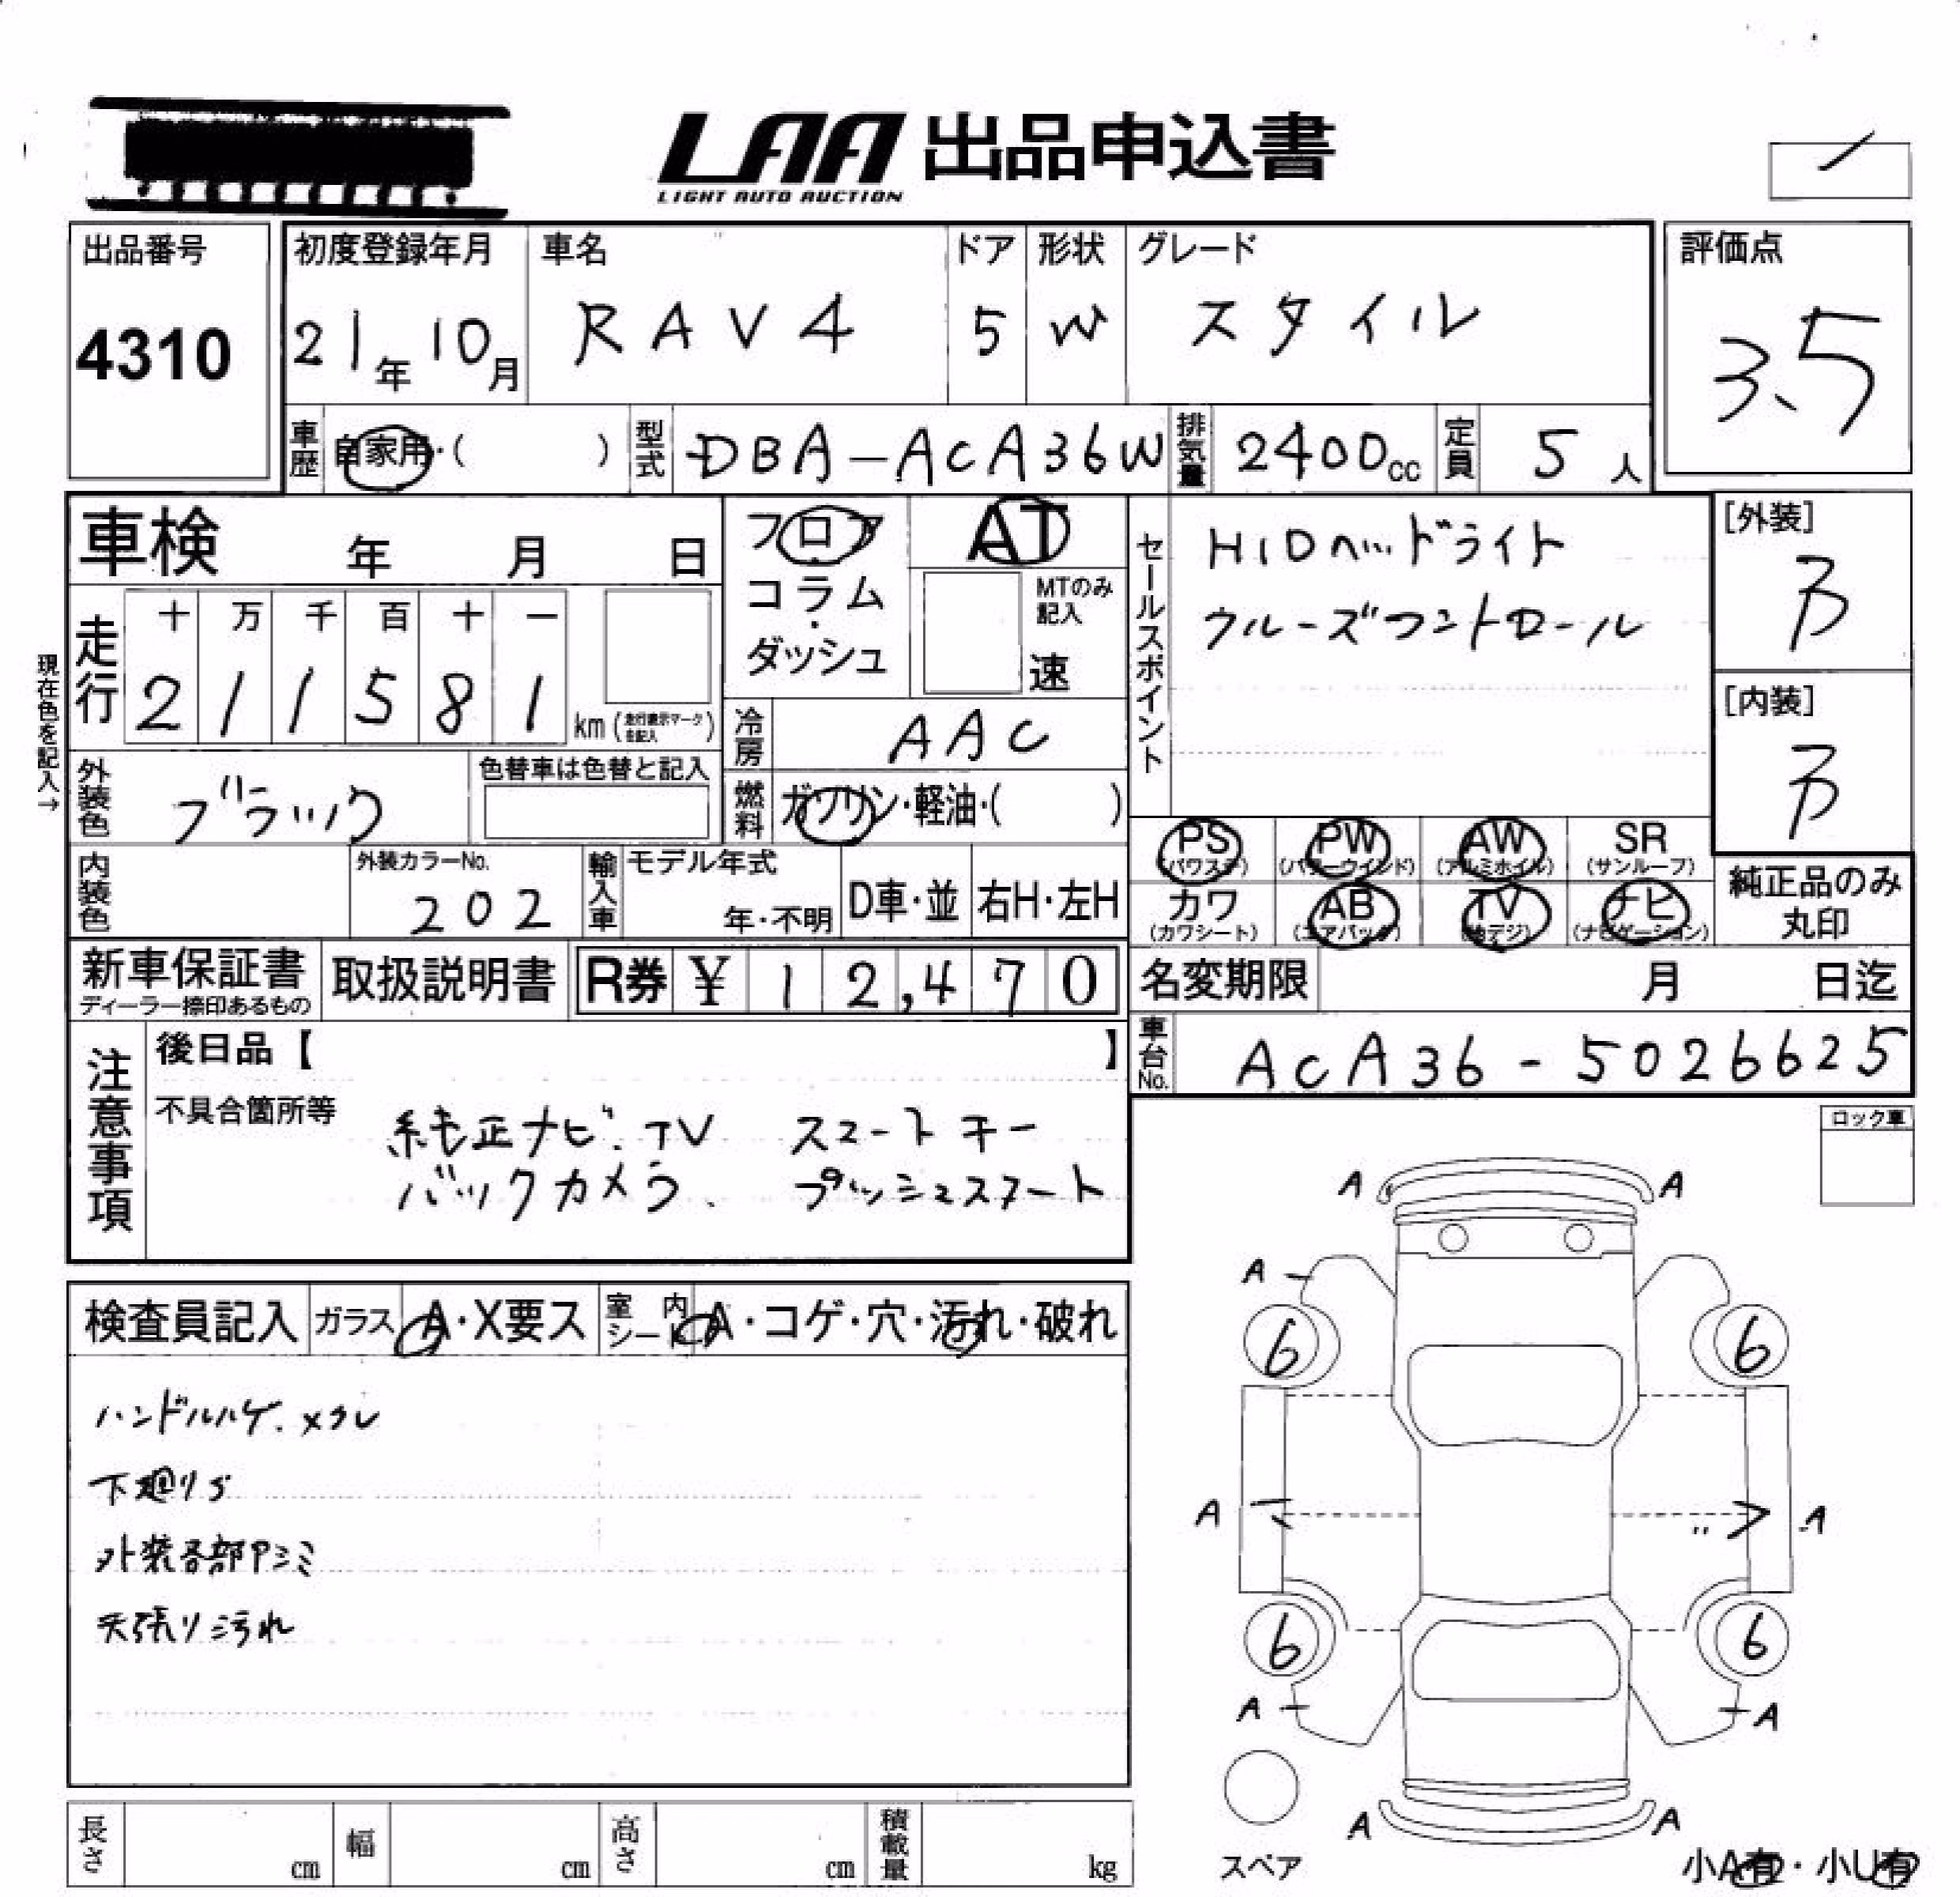 LAA 出品申込書
LIGHT AUTO AUCTION
出品番号
4310
初度登録年月
21年 10月
車名
RAV4
ドア
5
形状
W
グレード
スタイル
評価点
3.5
車歴 自家用・( )
型式 DBA-ACA36W
排気量 2400cc
定員 5人
車検 年 月 日
フロア・コラム・ダッシュ
AT
MTのみ記入
速
セールスポイント
HIDヘッドライト
クルーズコントロール
[外装]
B
[内装]
B
現在色を記入→
走行
十 万 千 百 十 一
2 1 1 5 8 1 km (走行表示マークを記入)
冷房 AAC
外装色 ブラック
色替車は色替と記入
燃料 ガソリン・軽油・( )
内装色
外装カラーNo.
202
輸入車
モデル年式
年・不明
D車・並
右H・左H
PS (パワステ)
PW (パワーウインド)
AW (アルミホイル)
SR (サンルーフ)
カワ (カワシート)
AB (エアバック)
TV (地デジ)
ナビ (ナビゲーション)
純正品のみ丸印
新車保証書
ディーラー捺印あるもの
取扱説明書
R券 ¥ 12,470
名変期限 月 日迄
車台No. ACA36-5026625
注意事項
後日品【 】
不具合箇所等
純正ナビ.TV スマートキー
バックカメラ. プッシュスタート
ロック車
検査員記入
ガラス A・X要ス
室内シート A・コゲ・穴・汚れ・破れ
ハンドルハゲ.メクレ
下廻りS
外装各部Pシミ
天張り汚れ
A A
A
6 6
A A
6 6
A A
A A
スペア
長さ cm
幅 cm
高さ cm
積載量 kg
小A有・小U有